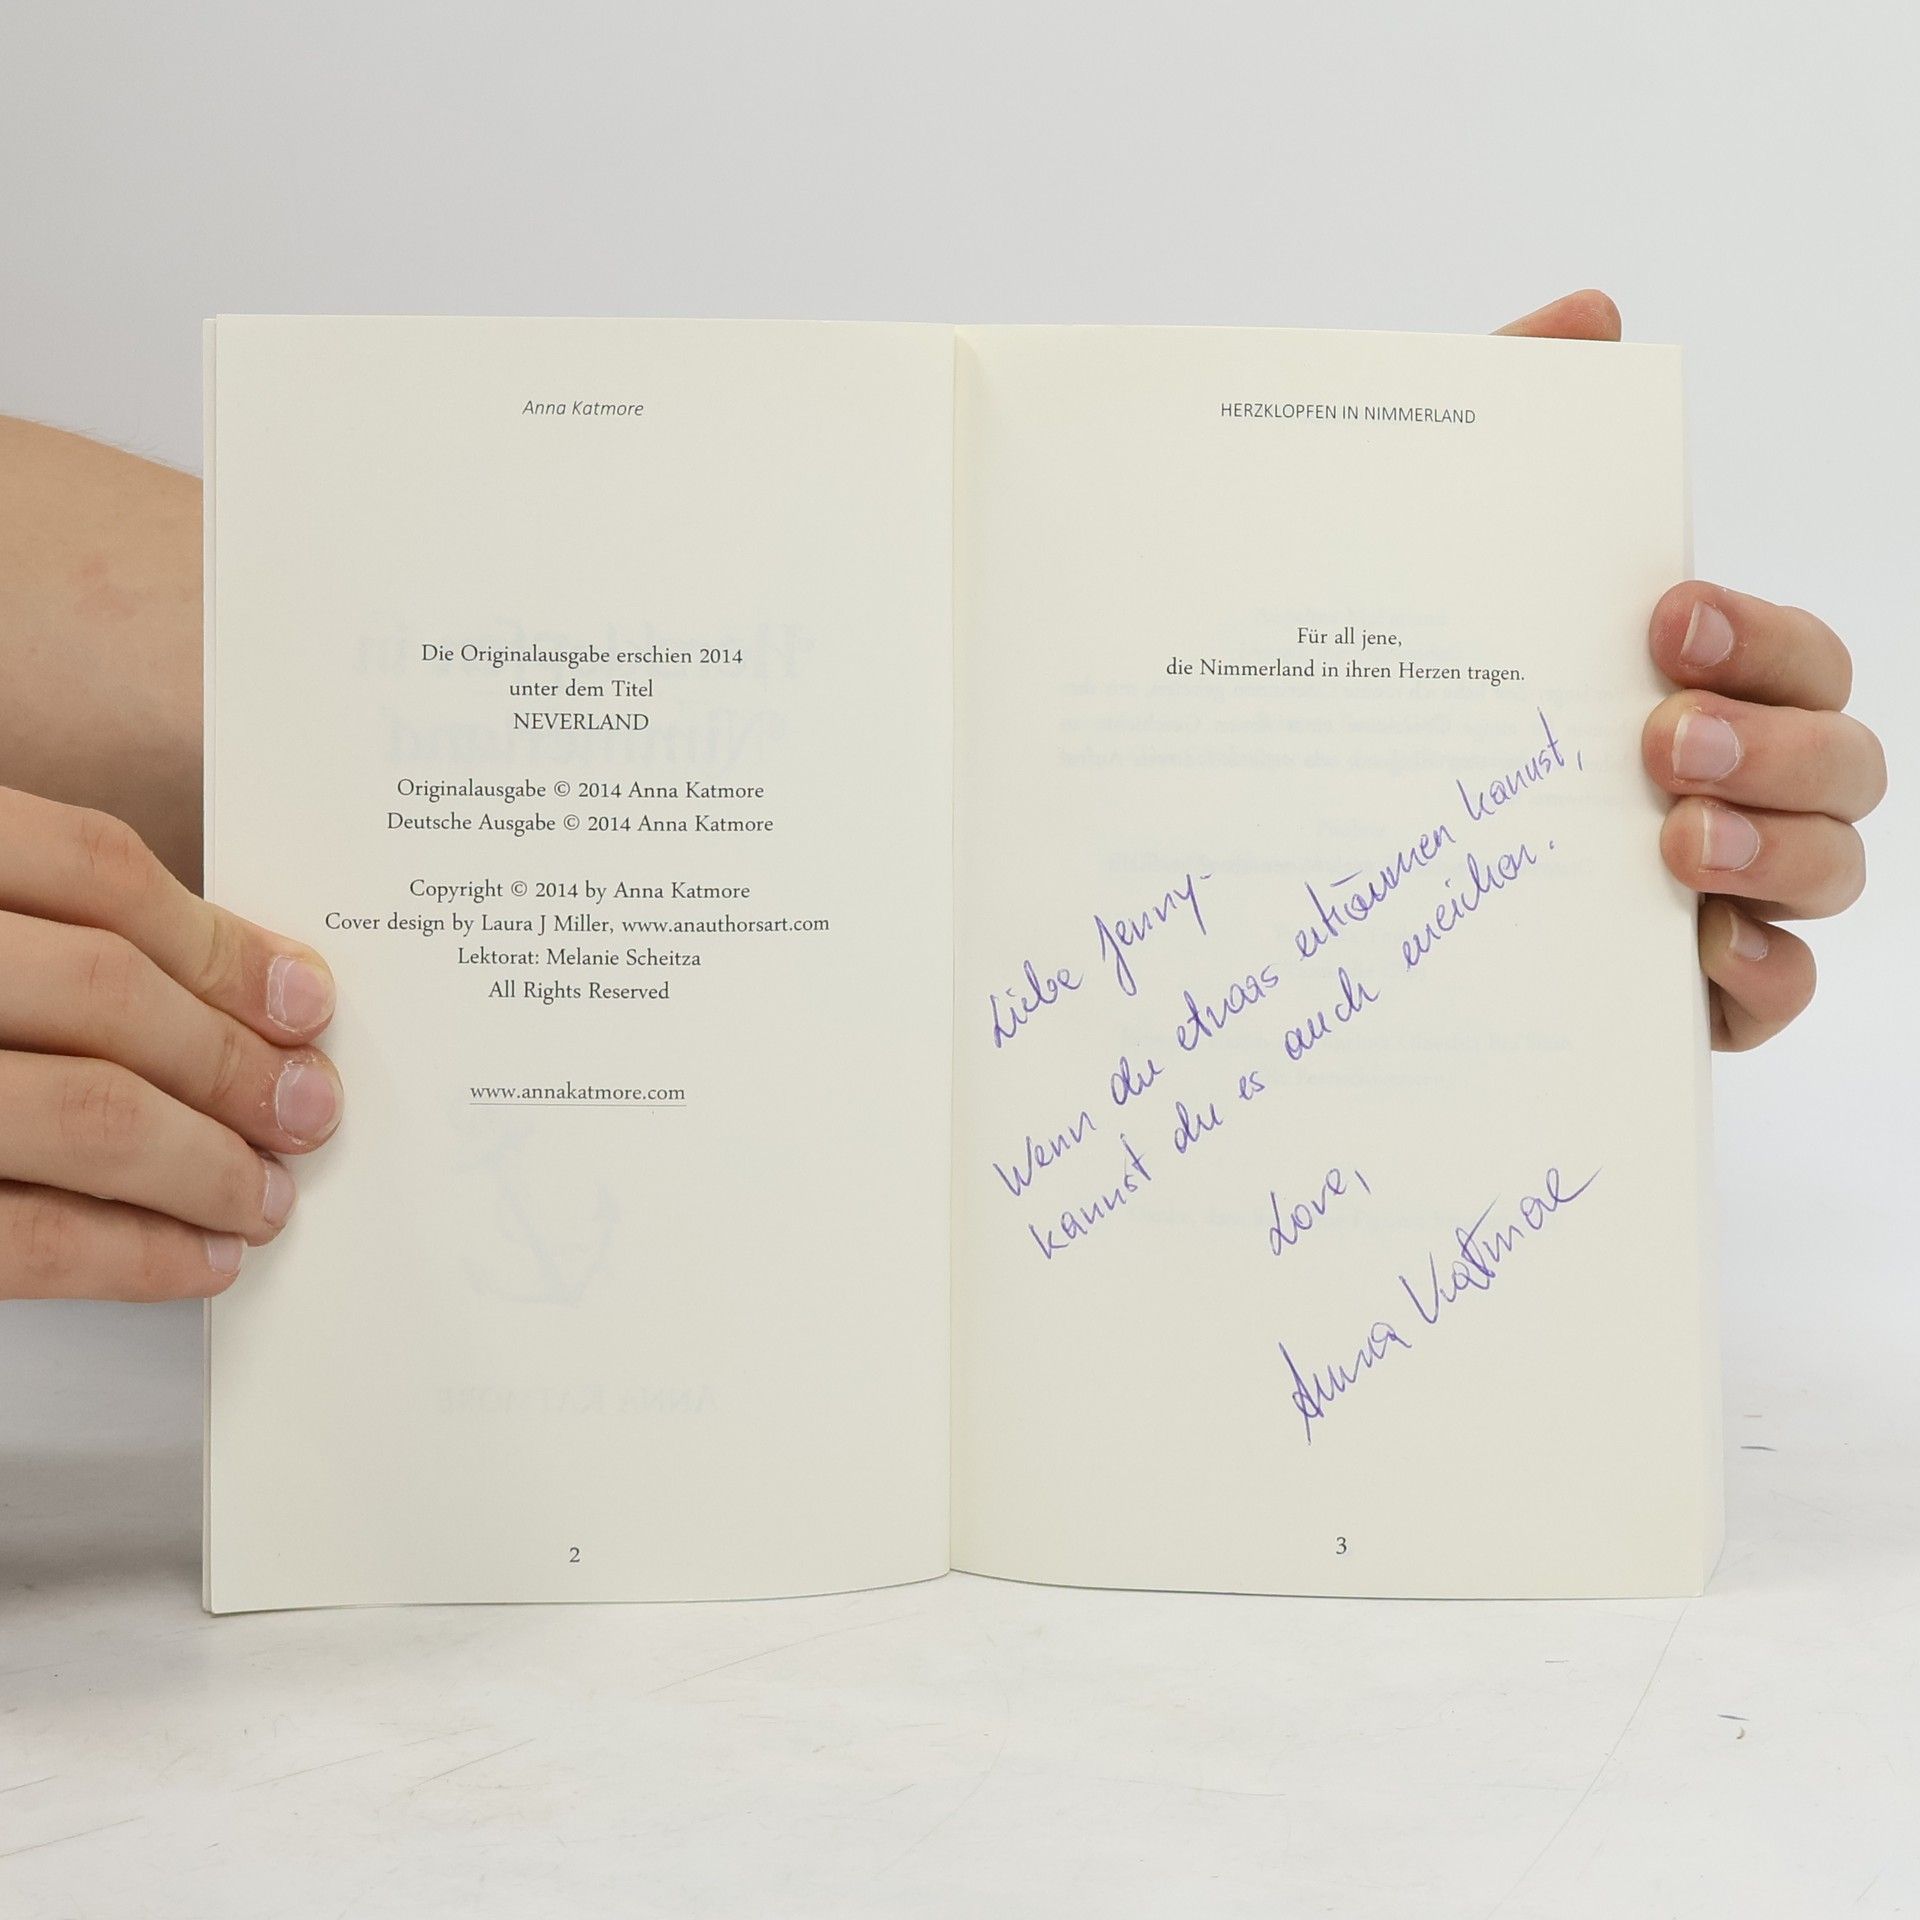 Anna Katmore
Die Originalausgabe erschien 2014
unter dem Titel
NEVERLAND
Originalausgabe © 2014 Anna Katmore
Deutsche Ausgabe © 2014 Anna Katmore
Copyright © 2014 by Anna Katmore
Cover design by Laura J Miller, www.anauthorsart.com
Lektorat: Melanie Scheitza
All Rights Reserved
www.annakatmore.com
2
HERZKLOPFEN IN NIMMERLAND
Für all jene,
die Nimmerland in ihren Herzen tragen.
Liebe Jenny-
Wenn du etwas erträumen kannst,
kannst du es auch erreichen.
Love,
Anna Katmore
3